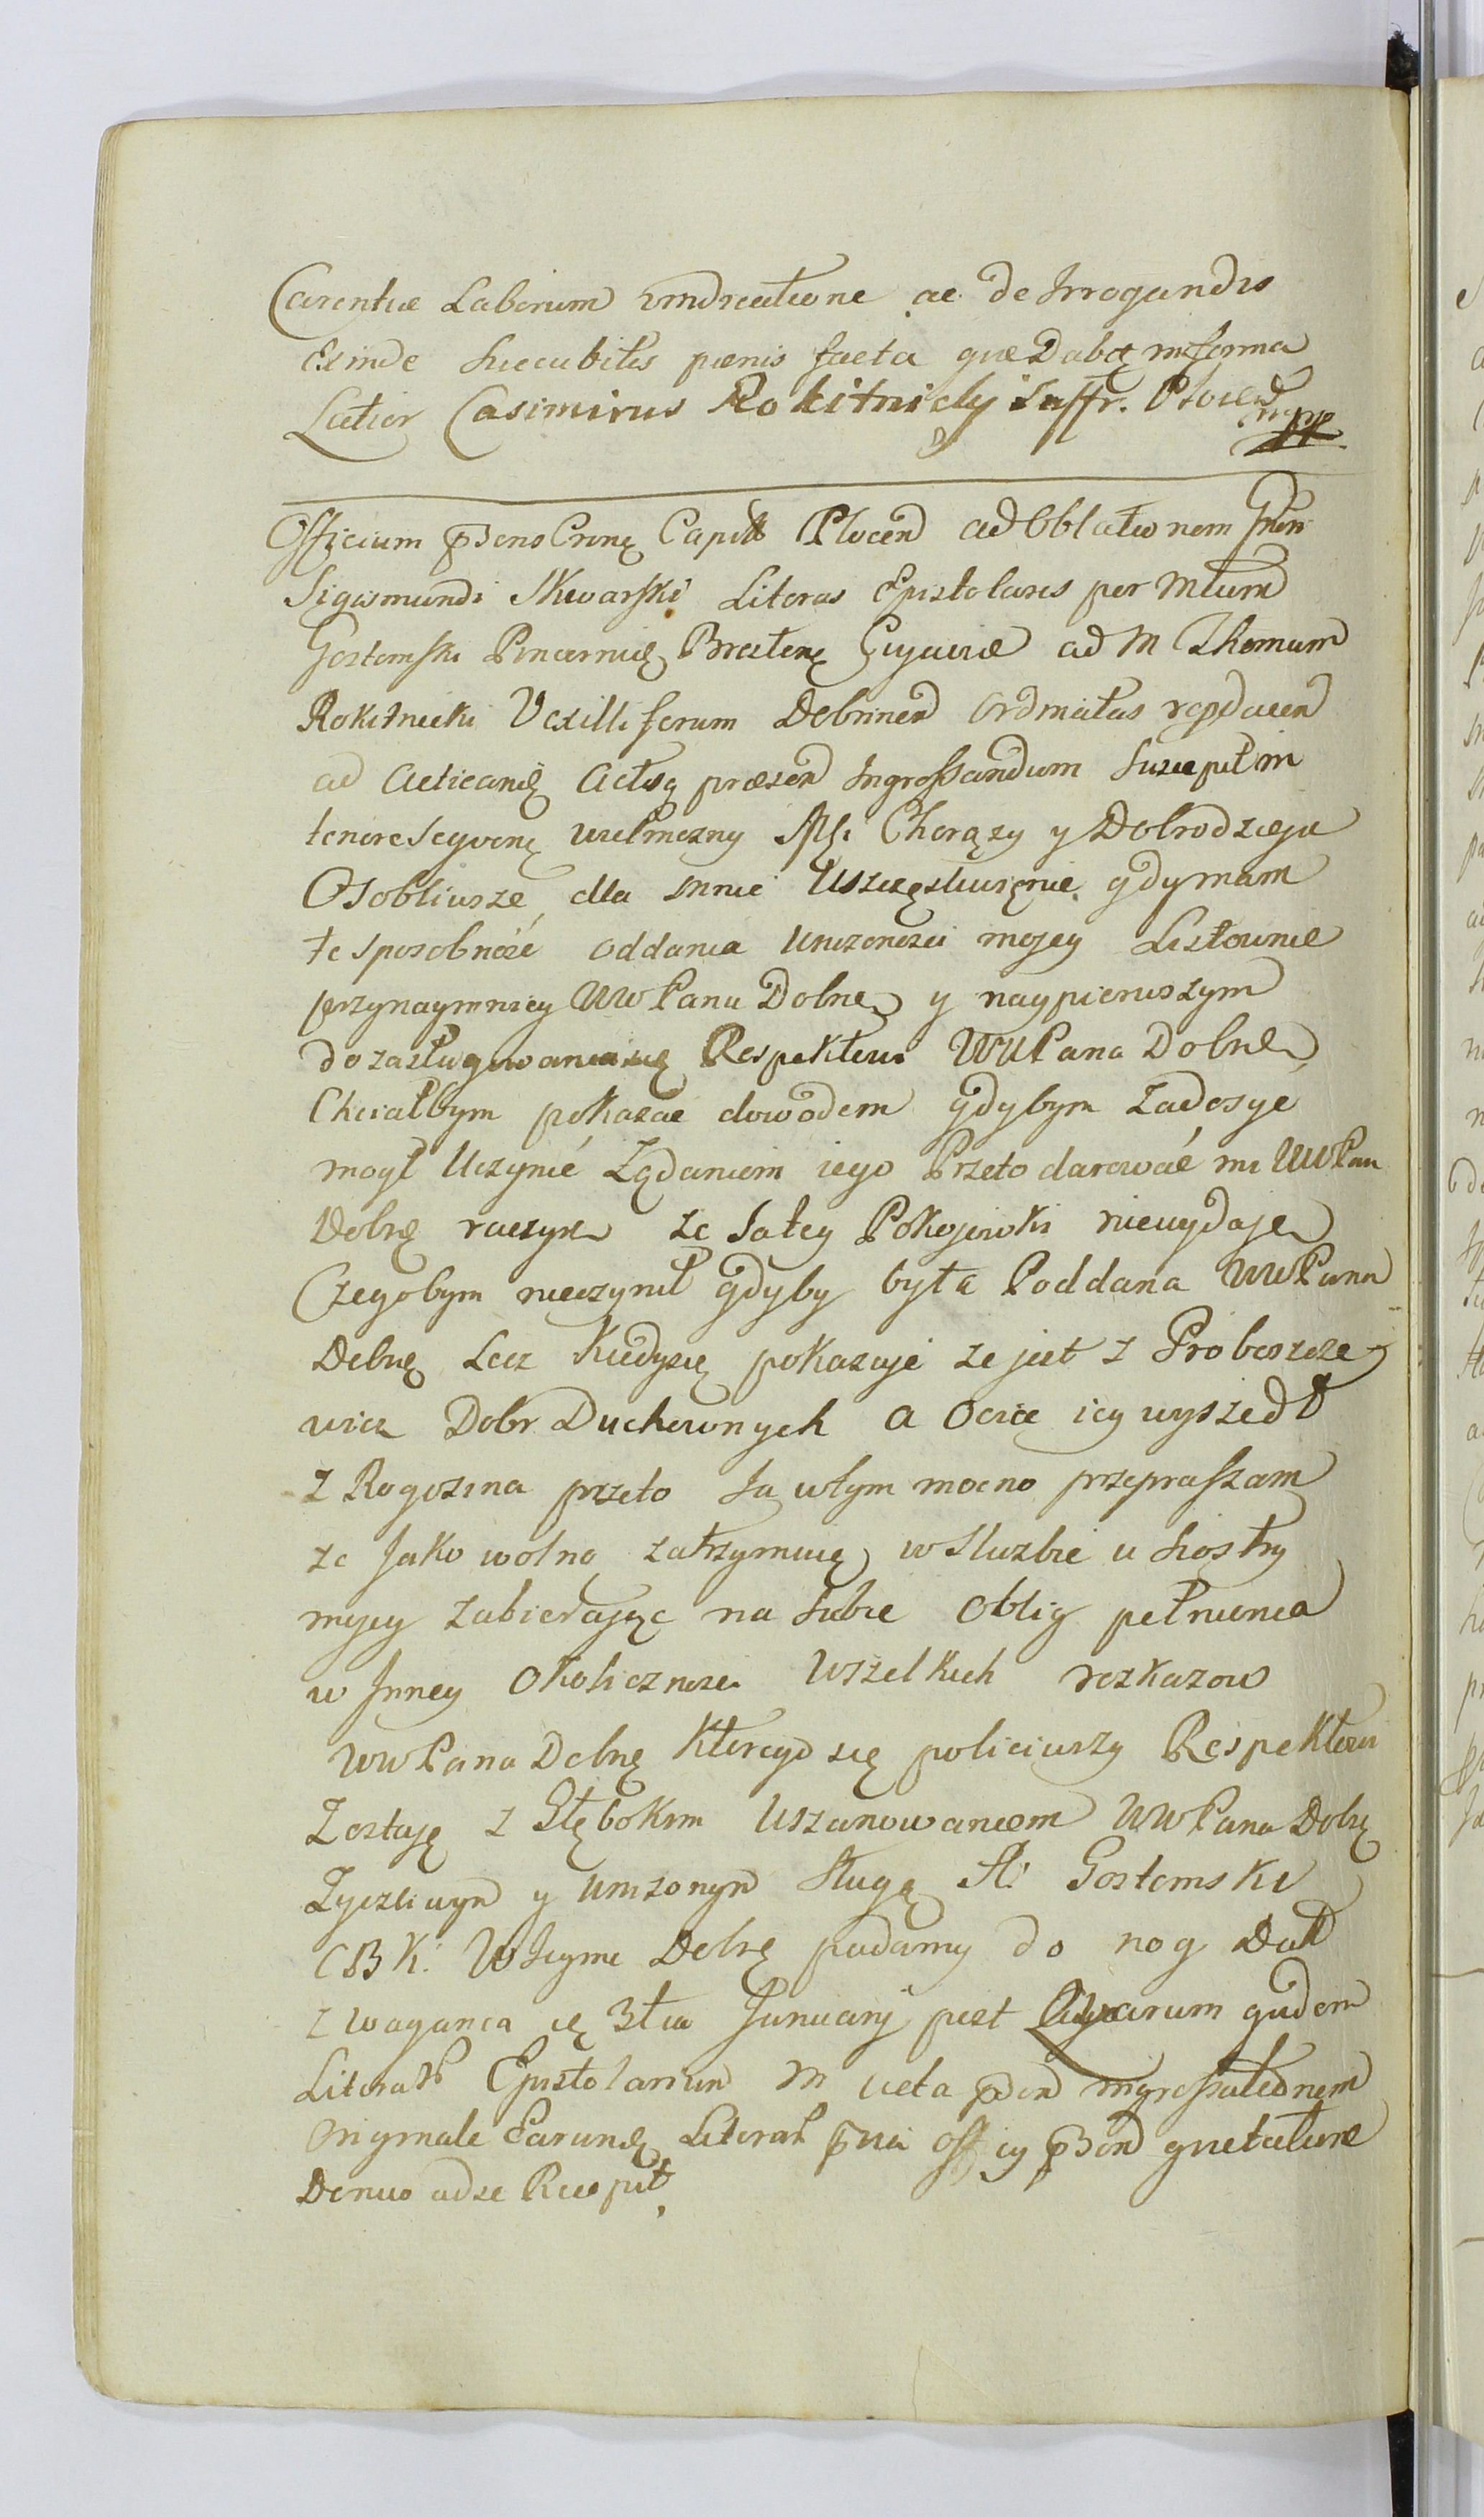 Carentiæ Laborum vindicatione ac de Irrogandis
Exinde succubitis pœnis facta quæ Dabę in forma
Latior Casimirus Rokitnicky Suffr. Plocen mpp
Officium Capitt Plocen ad Oblationem Gnosi
Sigismundi Skwarski Literas Epistolares per Mcum
Gostomski Pincernię Brestenę Cujaviæ ad M Thomam
Rokitnicki Vexilliferum Dobrinen Ordinatas
ad Acticandę Actisq præsen Ingrossandum Suscepit in
tenore Seqvenę wielmozny Mci Chorązy y Dobrodzieju
Osobliwsze dla mnie Uszczęsliwięnie gdy mam
te sposobność oddania Unizonosci mojey Listownie
przynaymniey WWPanu Dobrę y naypierwszym
do zasługiwania się Respektowi WWPana Dobrę
Chciałbym pokazac dowodem gdybym Zadosyć
mogł Uczynić Ządaniom iego Przeto darować mi WWPan
Dobrę raczysz ze Satey Pokojowki niewydaje
Czegobym nieczynił gdyby była Poddana WWPana
Dobrę Lecz Kiedysię pokazuje ze jest z Proboszcze
wicz Dobr Duchownych a Ociec iey wyszedł
z Rogozina przeto Ja wtym mocno przepraszam
ze Jako wolną zatrzymuię w Sluzbie u Siostry
mojey zabierając na Siebie Oblig pełnienia
w Jnney Okolicznosci Wszelkich rozkazow
WWPana Dobrę Ktoregosię policiwszy Respektowi
Zostaję z Głębokim Uszanowaniem WWPana Dobrę
Zyczliwym y Unizonym Sługą A: Gostomski
CBK: WJeymci Dobrę padamy do nog Datt
z Waganca 3tia Januarij post Quarum quidem
Literatt Epistolarium in acta ingrossationem
Originale Earundę Literatt
Denuo ad se Recepit